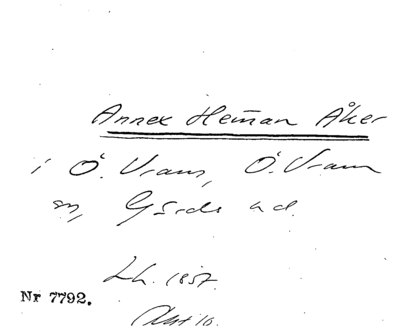 Annex Heman Åker
i Ö. Vram, Ö. Vram
sn, Gärds hd.
Lh. 1857.
Nr 7792.
Akt 10.